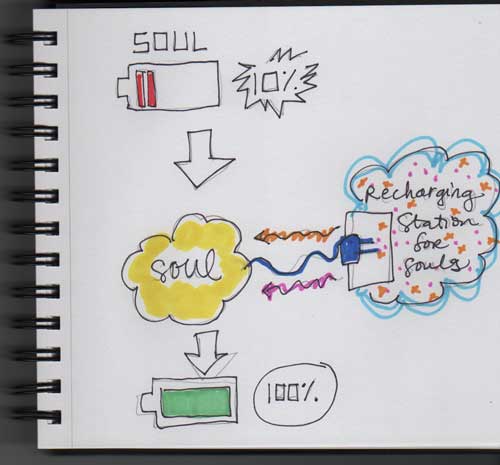 SOUL
10%
Recharging
Station
for
Souls
Soul
100%